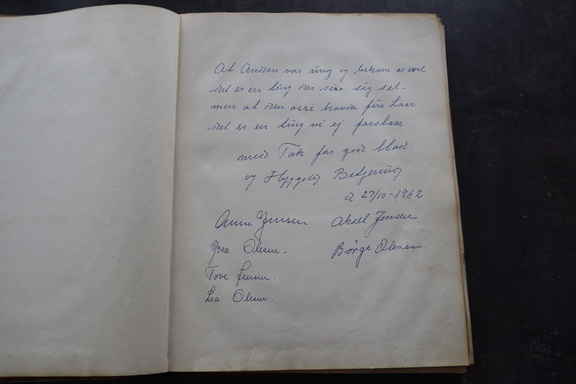 At Anden var ung og bekom os vel
det er en ting der siger sig selv
men at den også havde fire Laar
det er en ting vi ej forstaar
med Tak for god Mad
og Hyggelig Betjening
d 27/10-1962
Anna Jensen Aksel Jensen
Olesen. Børge Olesen.
Tove Jensen.
Lea Olesen.